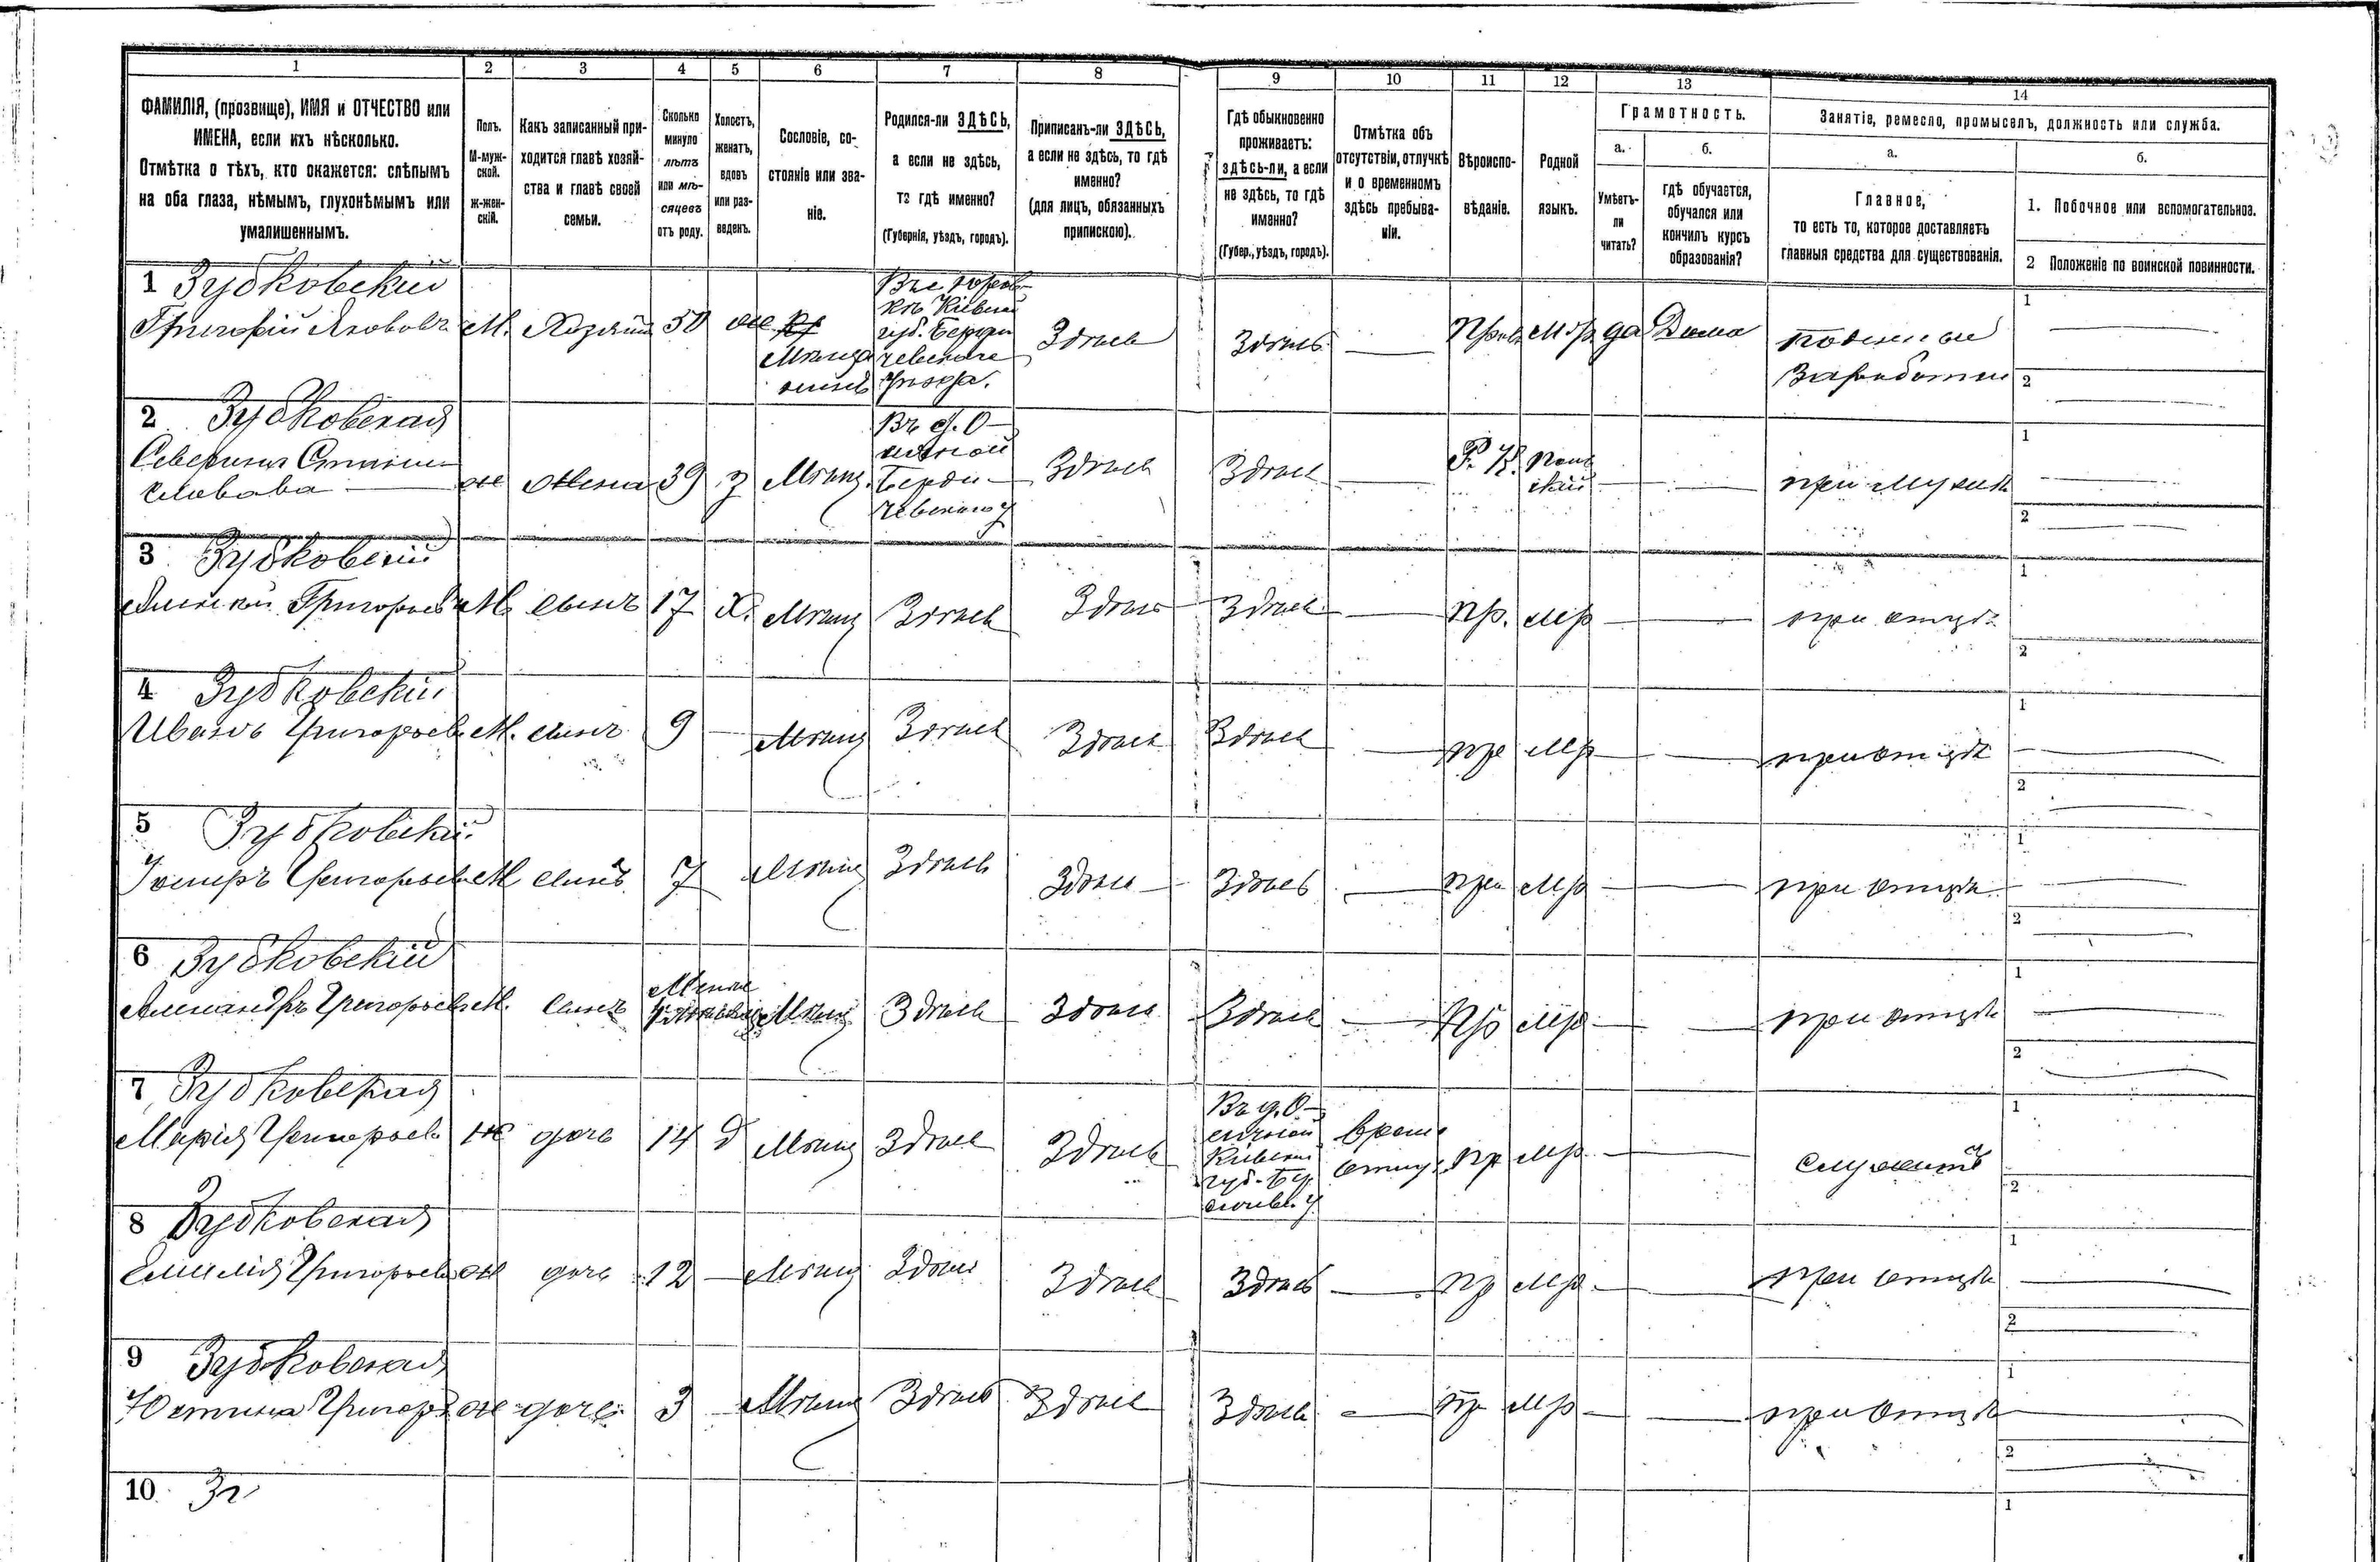 1 2 3 4 5 6 7 8 9 10 11 12 13 14
ФАМИЛІЯ, (прозвище), ИМЯ и ОТЧЕСТВО или
ИМЕНА, если ихъ нѣсколько.
Отмѣтка о тѣхъ, кто окажется: слѣпымъ
на оба глаза, нѣмымъ, глухонѣмымъ или
умалишеннымъ.
Полъ.
М-муж-
ской.
ж-жен-
скій.
Какъ записанный при-
ходится главѣ хозяй-
ства и главѣ своей
семьи.
Сколько
минуло
лѣтъ
или мѣ-
сяцевъ
отъ роду.
Холостъ,
женатъ,
вдовъ
или раз-
веденъ.
Сословіе, со-
стояніе или зва-
ніе.
Родился-ли ЗДѢСЬ,
а если не здѣсь,
то гдѣ именно?
(Губернія, уѣздъ, городъ).
Приписанъ-ли ЗДѢСЬ,
а если не здѣсь, то гдѣ
именно?
(для лицъ, обязанныхъ
припискою).
Гдѣ обыкновенно
проживаетъ:
здѣсь-ли, а если
не здѣсь, то гдѣ
именно?
(Губер., уѣздъ, городъ).
Отмѣтка объ
отсутствіи, отлучкѣ
и о временномъ
здѣсь пребыва-
ніи.
Вѣроиспо-
вѣданіе.
Родной
языкъ.
Грамотность.
а.
Умѣетъ-
ли
читать?
б.
гдѣ обучается,
обучался или
кончилъ курсъ
образованія?
Занятіе, ремесло, промыселъ, должность или служба.
а.
Главное,
то есть то, которое доставляетъ
главныя средства для существованія.
б.
1. Побочное или вспомогательное.
2 Положеніе по воинской повинности.
1 Зубковскій
Григорій Якововъ М. Хозяинъ 50 ж
Мѣща
нинъ
губ. Берди
чевскаго
Уѣзда.
Здѣсь Здѣсь Мр да Дома
Заработки
1
2
2 Зубковская
Северина Станис
лавова ж Жена 39 з Мѣщ.
Берди
чевского у
Здѣсь Здѣсь Р. К. Поль
скій при мужѣ
1
2
3 Зубковскій
Алексѣй Григорьев М сынъ 17 Х. Мѣщ Здѣсь Здѣсь Здѣсь Пр. Мр при отцѣ
1
2
4 Зубковскій
Иванъ Григорьев М. сынъ 9 Мѣщ Здѣсь Здѣсь Здѣсь пр Мр при отцѣ
1
2
5 Зубковскій
Григорьев М сынъ 7 Мѣщ Здѣсь Здѣсь Здѣсь пр Мр при отцѣ
1
2
6 Зубковскій
Александръ Григорьев М. сынъ Мѣщ Здѣсь Здѣсь Здѣсь Пр Мр при отцѣ
1
2
7 Зубковская
Марія Григорьев ж дочь 14 д Мѣщ Здѣсь Здѣсь
Кіевской
губ.
пр Мр служитъ
1
2
8 Зубковская
Емилія Григорьев ж дочь 12 Мѣщ Здѣсь Здѣсь Здѣсь пр Мр при отцѣ
1
2
9 Зубковская
Юстина Григор ж дочь 3 Мѣщ Здѣсь Здѣсь Здѣсь пр Мр при отцѣ
1
2
10
1